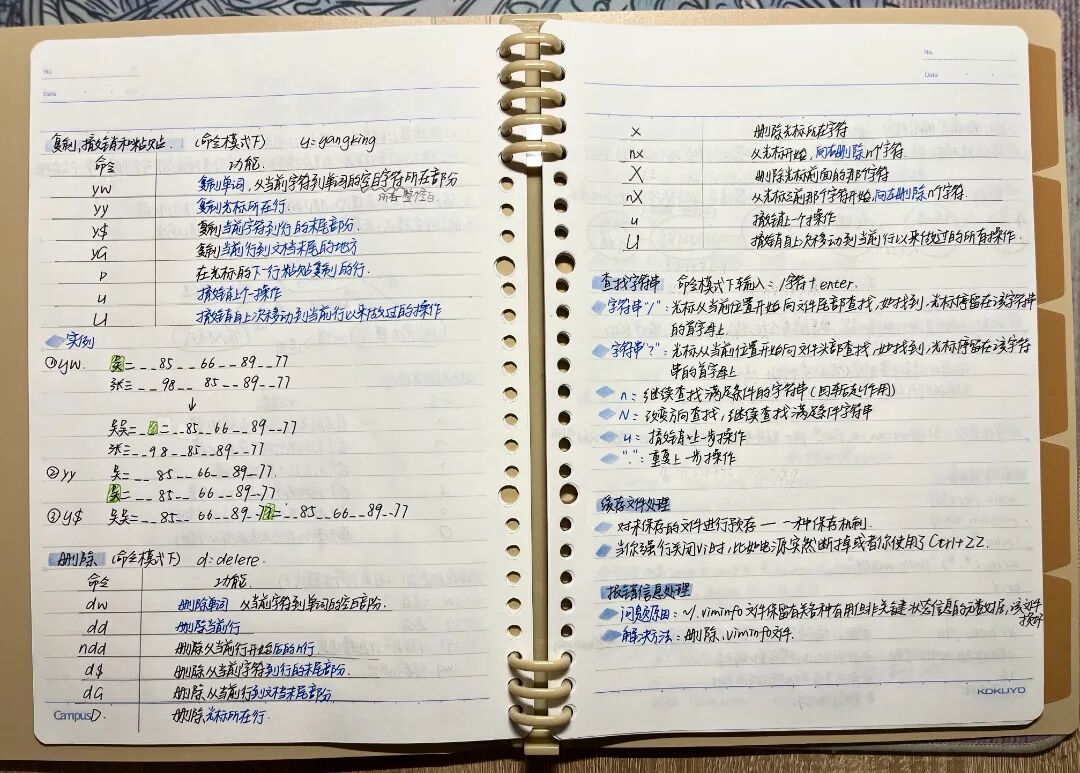 No.
Date
复制、撤销和粘贴 (命令模式下) y=yangking
命令 功能
yw 复制单词,从当前字符到单词的空白字符所在部分
所有整行包
yy 复制光标所在行.
y$ 复制当前字符到行的末尾部分.
yG 复制当前行到文档末尾的地方
p 在光标的下一行粘贴复制的行.
u 撤销上个操作
U 撤销自上次移动到当前行以来做过的操作
实例
①yw. 吴三_ _85_ _66_ _89_ _77
张三_ _98_ _85_ _89_ _77
↓
吴吴三_ _三_ _85_ _66_ _89_ _77
张三_ _98_ _85_ _89_ _77
②yy 吴三_ _85_ _66_ _89_ _77.
吴三_ _85_ _66_ _89_ _77
③y$ 吴吴三_ _85_ _66_ _89_ _77三_ _85_ _66_ _89_ _77
删除 (命令模式下) d:delete
命令 功能.
dw 删除单词 从当前字符到单词的空白部份.
dd 删除当前行
ndd 删除从当前行开始后的n行.
d$ 删除从当前字符到行的末尾部分.
dG 删除从当前行到文档末尾部分.
D. 删除光标所在行.
Campus
No.
Date
x 删除光标所在字符
nx 从光标开始,向右删除n个字符.
X 删除光标前面的那个字符
nX 从光标前那个字符开始,向左删除n个字符.
u 撤销上一个操作
U 撤销自上次移动到当前行以来做过的所有操作.
查找字符串 命令模式下输入:/字符+enter.
字符串"/":光标从当前位置开始向文件尾部查找,如找到,光标停留在该字符串
的首字母上.
字符串"?":光标从当前位置开始向文件头部查找,如找到,光标停留在该字符
串的首字母上
n:继续查找满足条件的字符串(回车起作用)
N:改变方向查找,继续查找满足条件字符串
u:撤销上一步操作
".":重复上一步操作
缓存文件处理
对未保存的文件进行预存——一种保存机制.
当你强行关闭Vi时,比如电源突然断掉或者你使用了Ctrl+ZZ.
报错信息处理
问题原因:~/.viminfo文件保留有各种有用但非关键状态信息的元数据,该文件
损坏
解决方法:删除.viminfo文件.
KOKUYO